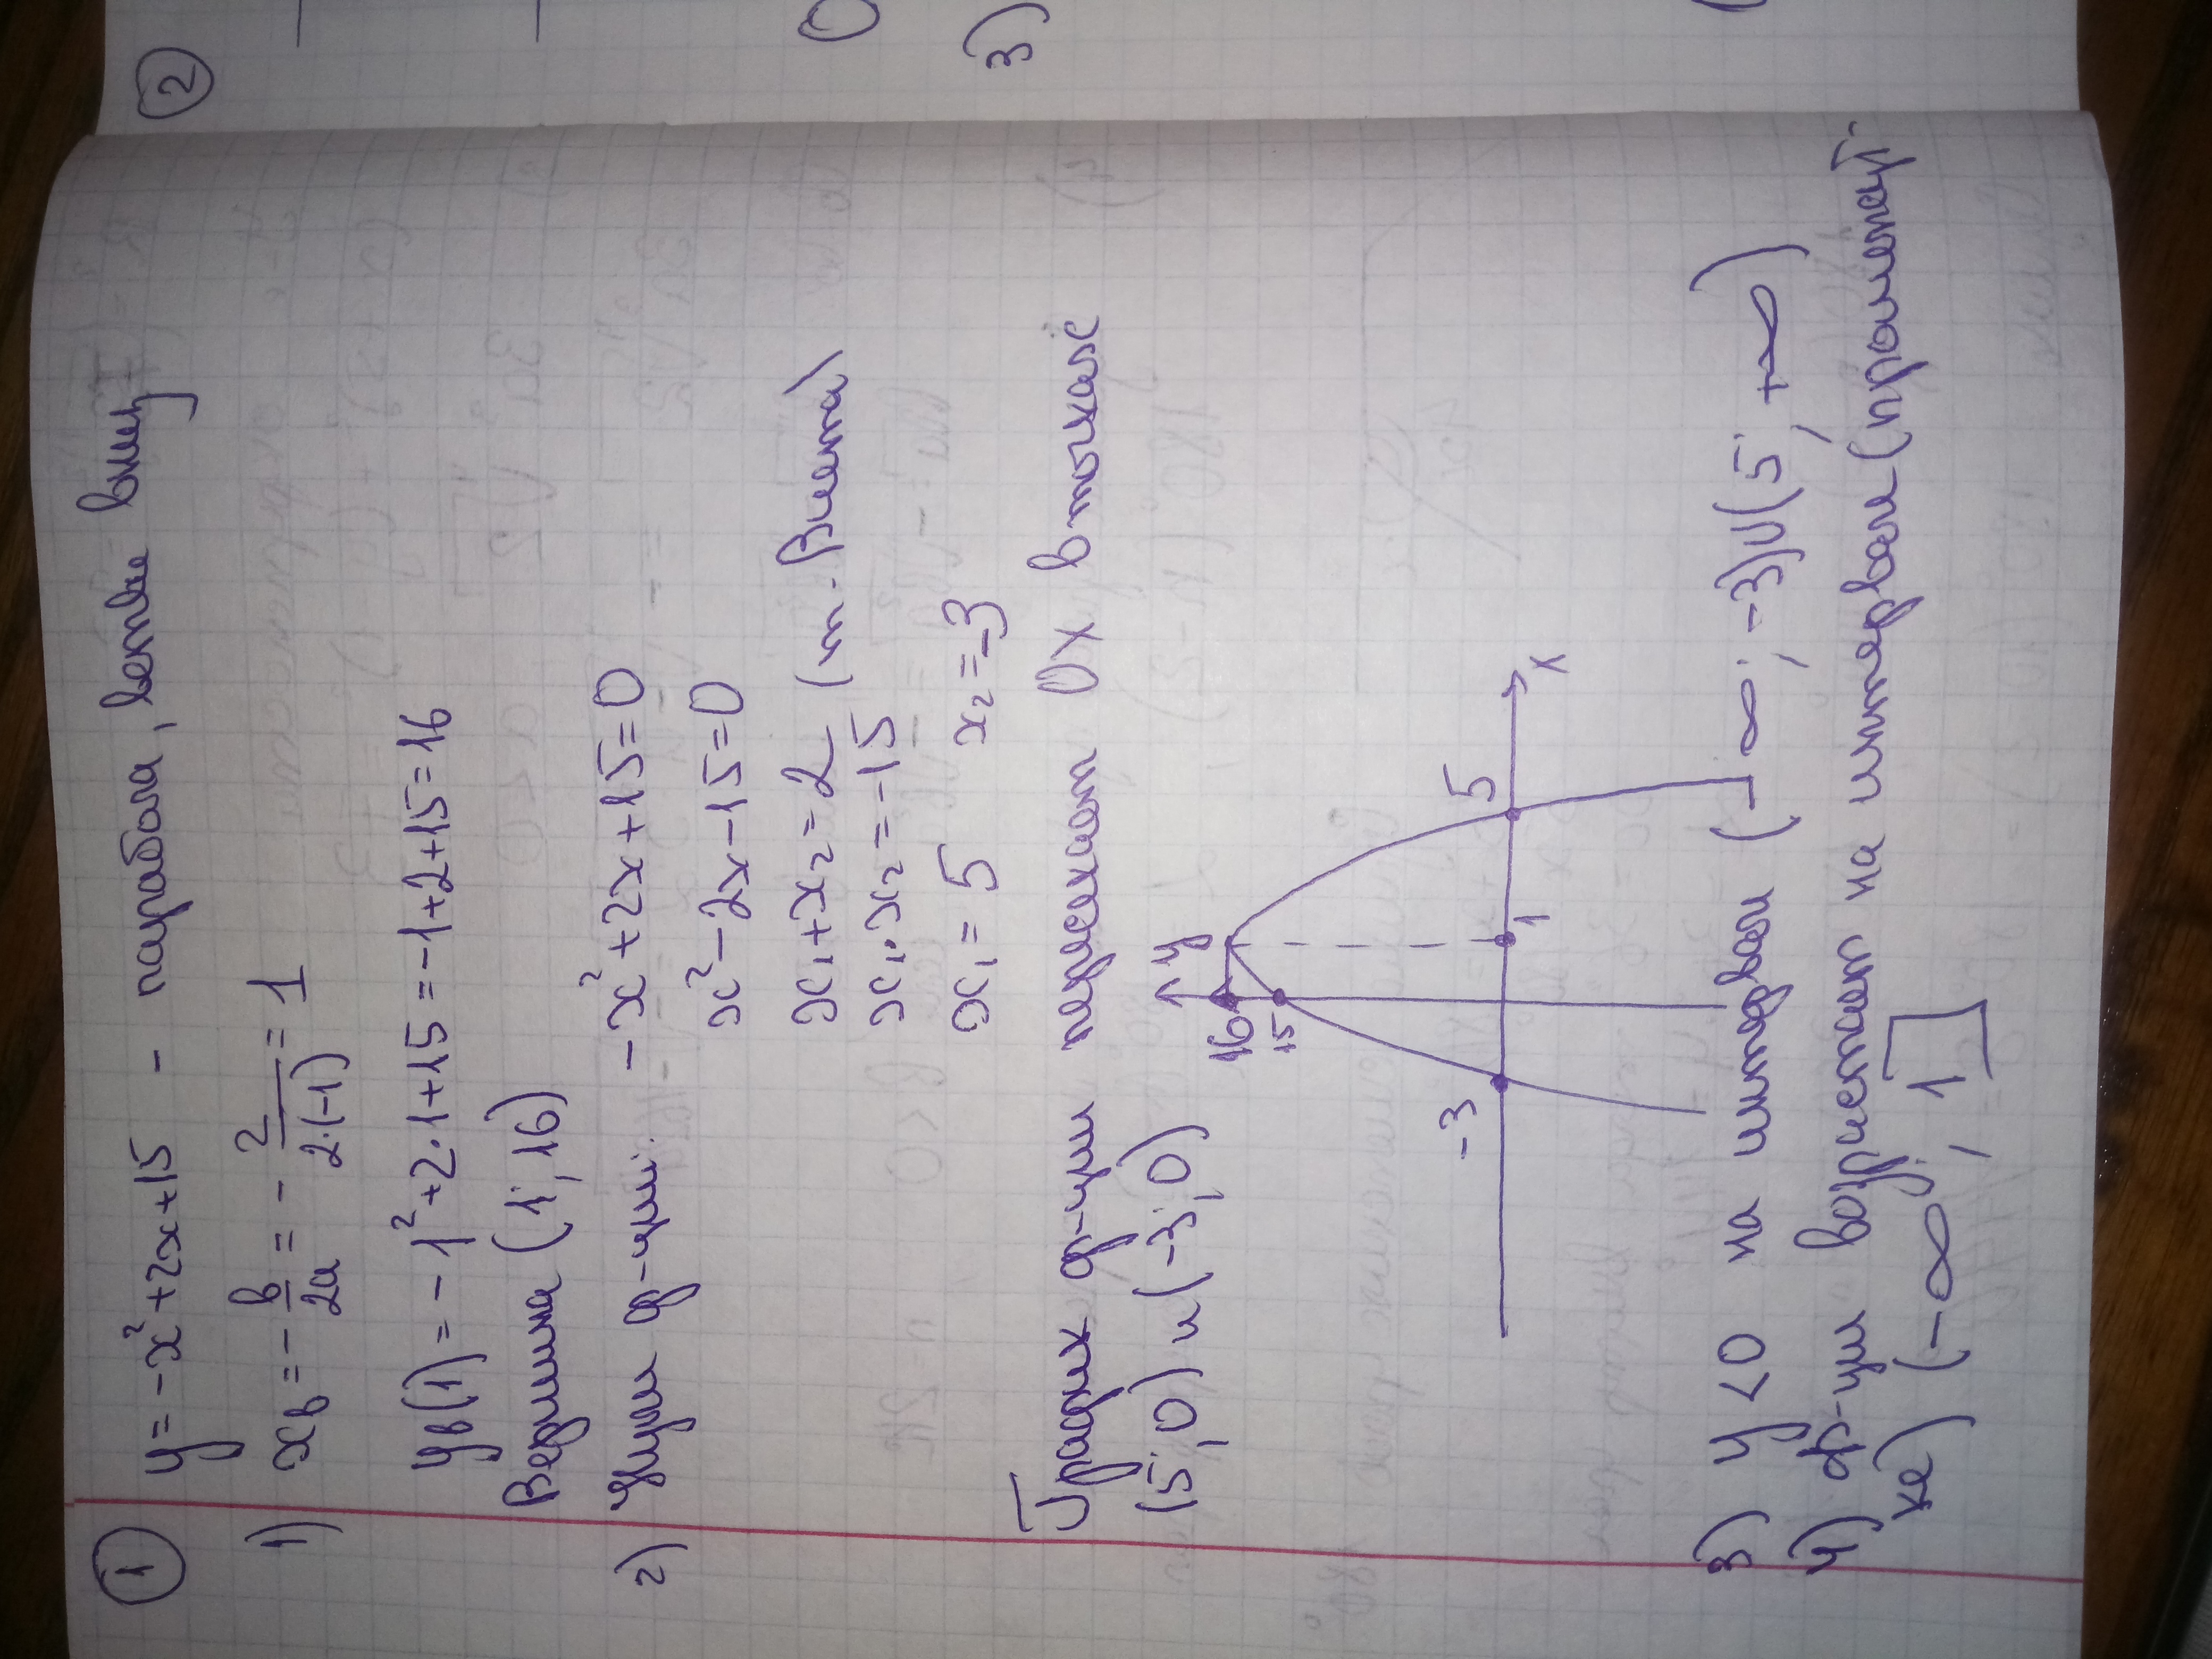 ① y = -x² + 2x + 15 - парабола, ветви вниз
1) xв = -в/2a = - 2/2·(-1) = 1
yв(1) = -1² + 2·1 + 15 = -1 + 2 + 15 = 16
Вершина (1; 16)
2) Нули ф-ции: -x² + 2x + 15 = 0
x² - 2x - 15 = 0
x₁ + x₂ = 2 (т. Виета)
x₁ · x₂ = -15
x₁ = 5 x₂ = -3
График ф-ции пересекает Ox в точках
(5; 0) и (-3; 0)
y
16
15
-3 1 5 x
3) y < 0 на интервали (-∞; -3)∪(5; +∞)
4) ф-ции возрастает на интервали (промежут-
ке) (-∞; 1]
②
3)